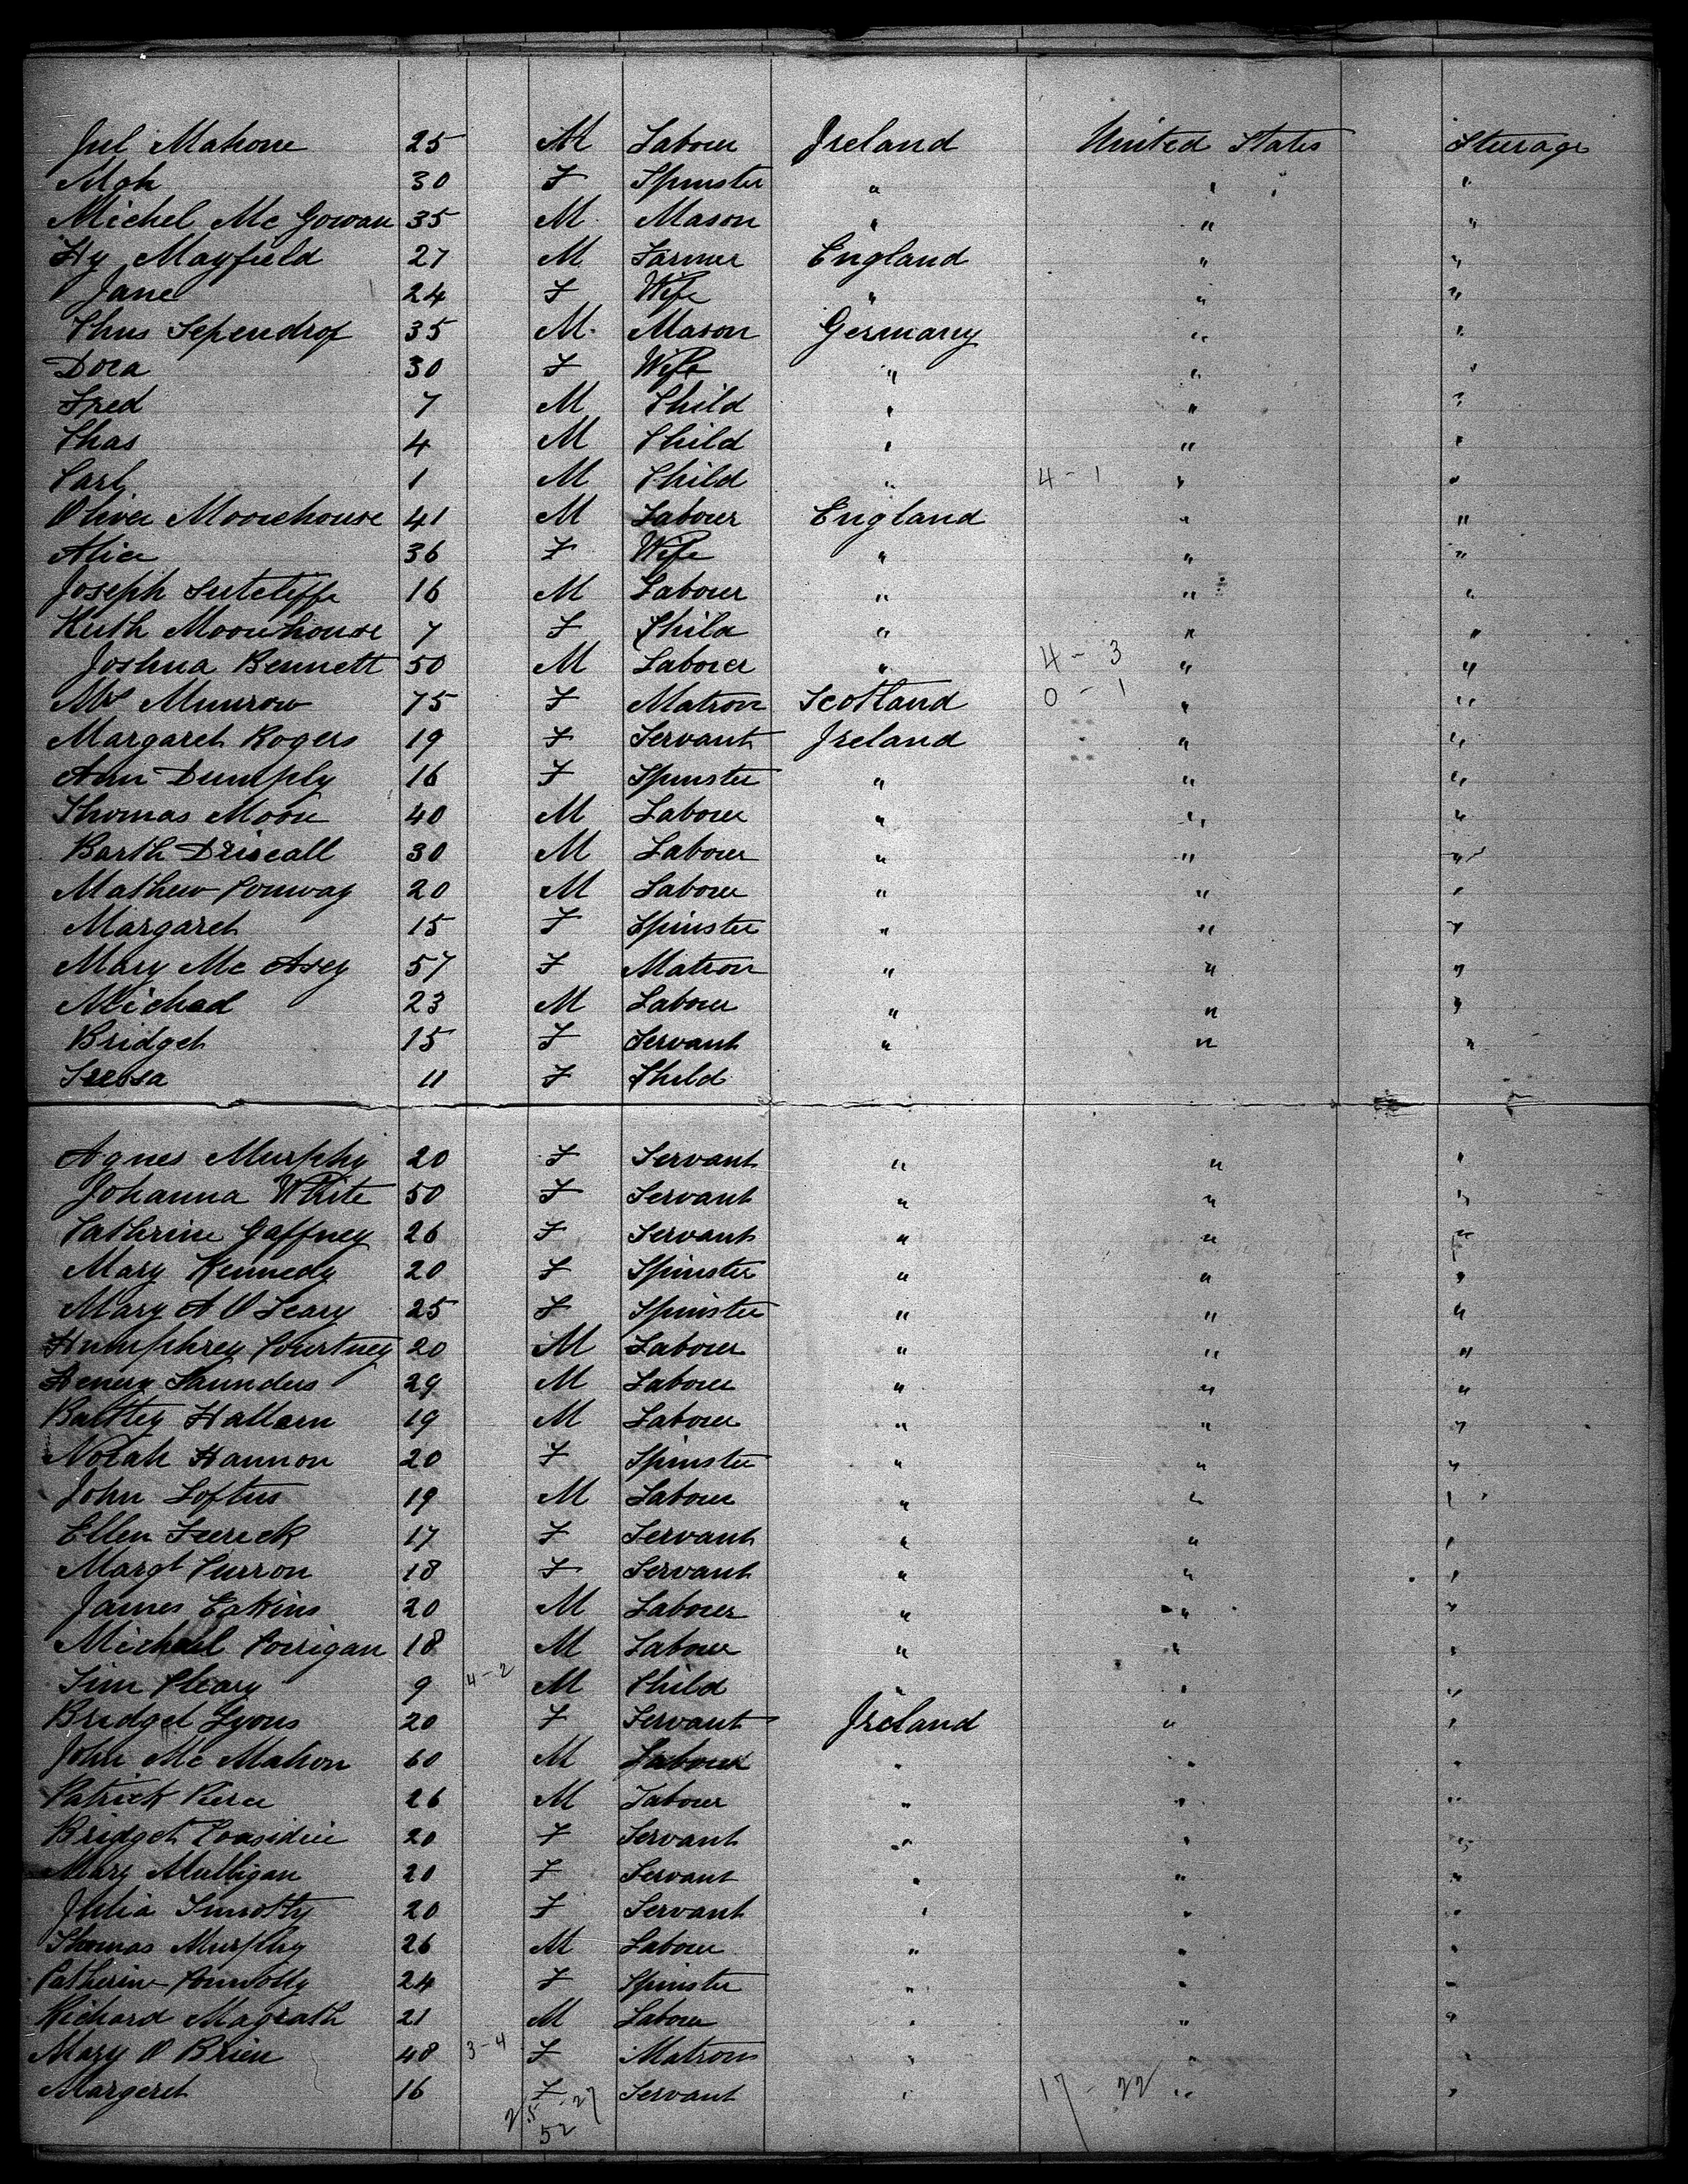 Jul Mahone 25 M Labour Ireland United States Steerage
Mgh 30 F Spinster " " "
Michel Mc Gowan 35 M Mason " " "
Hy Mayfield 27 M Farmer England " "
Jane 24 F Wife " " "
Chus Sependrof 35 M Mason Germany " "
Dora 30 F Wife " " "
Fred 7 M Child " " "
Chas 4 M Child " " "
Carl 1 M Child " 4 - 1 " "
Oliver Moorehouse 41 M Labourer England " "
Alice 36 F Wife " " "
Joseph Sutcliffe 16 M Labourer " " "
Ruth Moorehouse 7 F Child " " "
Joshua Bennett 50 M Laborer " 4 - 3 " "
Mrs Munrow 75 F Matron Scotland 0 - 1 " "
Margaret Rogers 19 F Servant Ireland " "
Ann Dumphy 16 F Spinster " " "
Thomas Moore 40 M Laborer " " "
Barth Driscall 30 M Laborer " " "
Mathew Conway 20 M Laborer " " "
Margaret 15 F Spinster " " "
Mary Mc Avey 57 F Matron " " "
Michael 23 M Laborer " " "
Bridget 15 F Servant " " "
Teressa 11 F Child
Agnes Murphy 20 F Servant " " "
Johanna White 50 F Servant " " "
Cathrine Gaffney 26 F Servant " " "
Mary Kennedy 20 F Spinster " " "
Mary A O Leary 25 F Spinster " " "
Humphrey Courtney 20 M Laborer " " "
Henery Saunders 29 M Laborer " " "
Battley Hallarn 19 M Laborer " " "
Norah Hannon 20 F Spinster " " "
John Loftus 19 M Laborer " " "
Ellen Feerick 17 F Servant " " "
Margt Curron 18 F Servant " " "
James Eakins 20 M Laborer " " "
Michael Corrigan 18 M Laborer " " "
Tim Cleary 9 4-2 M Child " " "
Bridget Lyons 20 F Servant Ireland " "
John Mc Mahon 60 M Laborer " " "
Patrick Pierce 26 M Laborer " " "
Bridget Considine 20 F Servant " " "
Mary Mulligan 20 F Servant " " "
Julia Timothy 20 F Servant " " "
Thomas Murphy 26 M Laborer " " "
Catherine Connolly 24 F Spinster " " "
Richard Magrath 21 M Laborer " " "
Mary O Brien 48 3-4 F Matron " " "
Margeret 16 F Servant " 17 - 22 " "
25 - 27
52